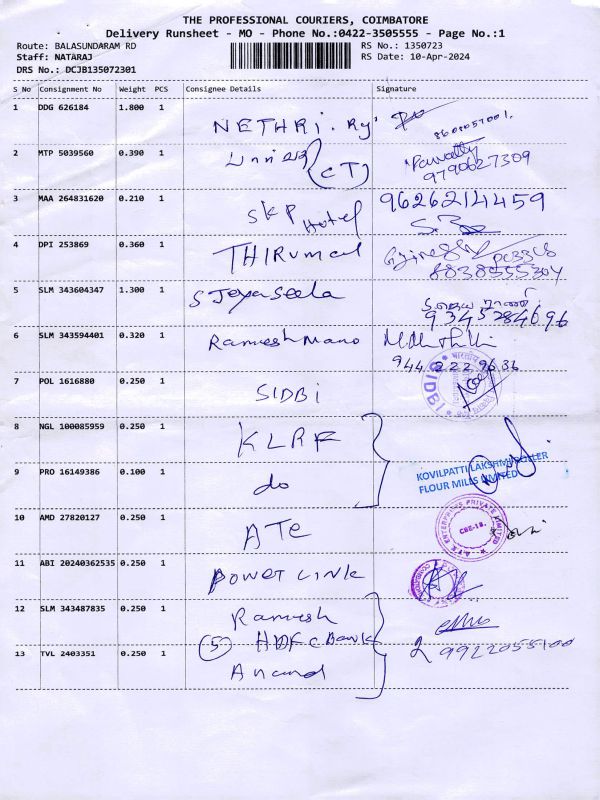 THE PROFESSIONAL COURIERS, COIMBATORE
Delivery Runsheet - MO - Phone No.:0422-3505555 - Page No.:1
Route: BALASUNDARAM RD
Staff: NATARAJ
DRS No.: DCJB135072301
RS No.: 1350723
RS Date: 10-Apr-2024
S No Consignment No Weight PCS Consignee Details Signature
1 DDG 626184 1.800 1 NETHRI. Ry'
8608057001.
2 MTP 5039560 0.390 1 (CT)
Pawatty
9790627309
3 MAA 264831620 0.210 1 SKP Hotel 96262 14459
4 DPI 253869 0.360 1 THIRUmal
PC3368
8838555304
5 SLM 343604347 1.300 1 S Jeyaseela
9345284696
6 SLM 343594401 0.320 1 Ramesh Mano
944 222 9636
7 POL 1616880 0.250 1 SIDBi SIDBI
8 NGL 100085959 0.250 1 KLRF
KOVILPATTI LAKSHMI ROLLER
FLOUR MILLS LIMITED
9 PRO 16149386 0.100 1 do
10 AMD 27820127 0.250 1 ATE
ATE ENTERPRISES PRIVATE LIMITED
CBE-18.
11 ABI 20240362535 0.250 1 Power Link
12 SLM 343487835 0.250 1 Ramesh
(5) HDFC Bank
13 TVL 2403351 0.250 1 Anand
9922055100